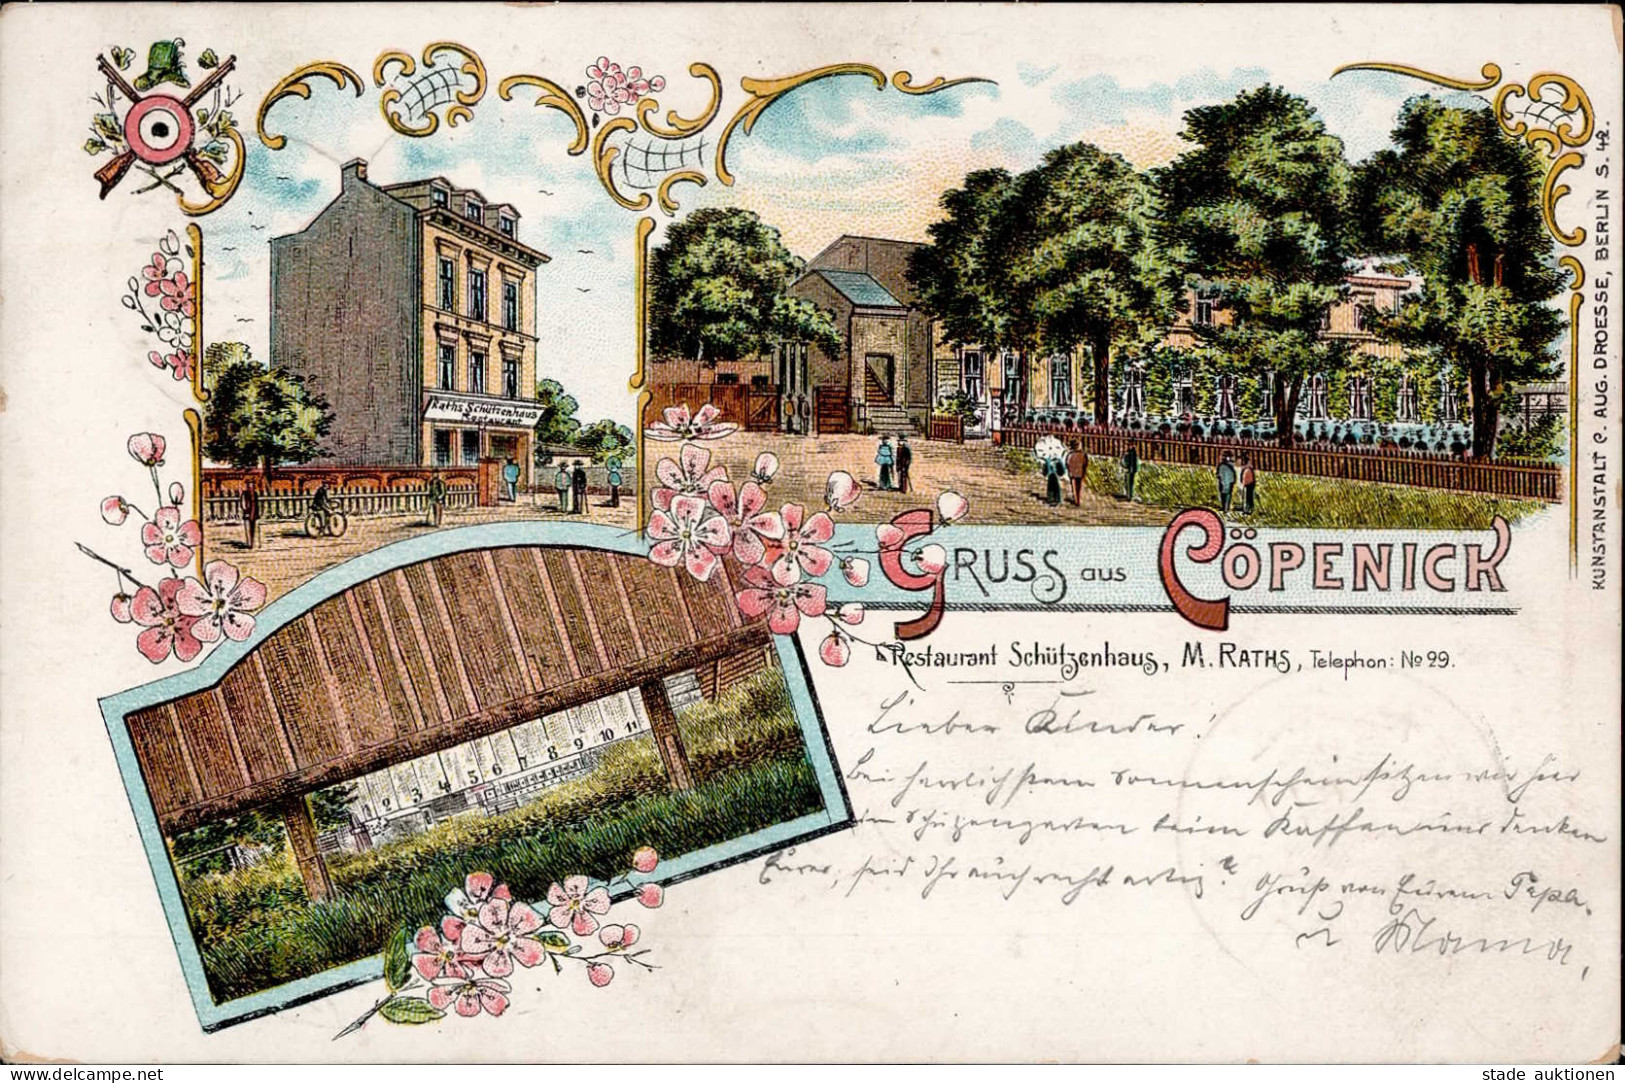 Raths Schützenhaus
Restaurant
GRUSS aus CÖPENICK
Restaurant Schützenhaus, M. RATHS, Telephon: No 29.
KUNSTANSTALT C. AUG. DROESSE, BERLIN S. 42.
1 2 3 4 5 6 7 8 9 10 11
Lieben Kinder!
Bei herrlichstem Sonnenschein sitzen wir hier
im Schützengarten beim Kaffee und denken
Eurer, seid Ihr auch recht artig? Gruß von Eurem Papa.
u Mama,
stade auktionen
www.delcampe.net